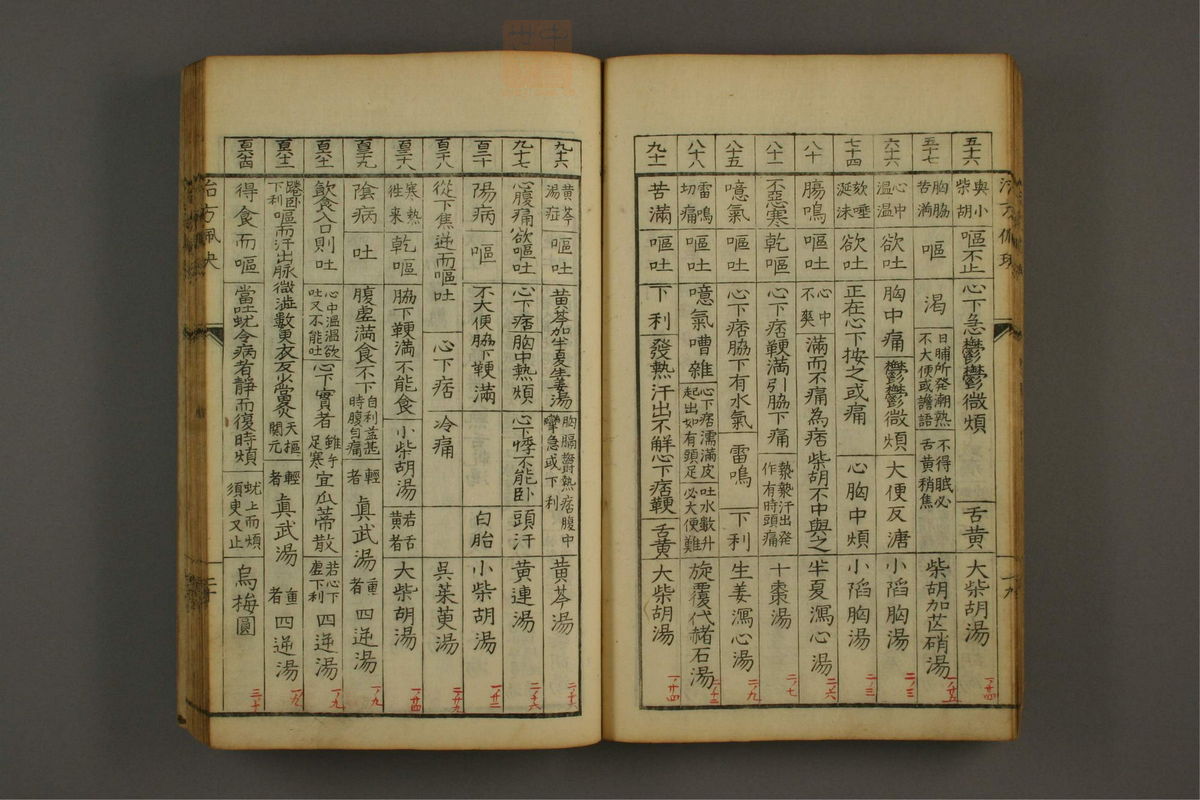 五十六 與小柴胡 嘔不止 心下急鬱鬱微煩 舌黃 大柴胡湯 一ノ廿四
五十七 胸脇苦滿 嘔 渴 日晡所發潮熱不大便或譫語 不得眠必舌黃稍焦 柴胡加芒硝湯
六十六 心中溫溫 欲吐 胸中痛 鬱鬱微煩 大便反溏 小䧟胸湯 二ノ三
七十四 欬唾涎沫 欲吐 正在心下按之或痛 心胸中煩 小䧟胸湯 二ノ三
八十 腸鳴 嘔吐 心中不爽 滿而不痛為痞柴胡不中與之 半夏瀉心湯 二ノ六
八十一 不惡寒 乾嘔 心下痞鞕滿引脇下痛 漐漐汗出發作有時頭痛 十棗湯 二ノ七
八十五 噫氣 嘔吐 心下痞脇下有水氣 雷鳴 下利 生姜瀉心湯 二ノ九
八十八 雷鳴切痛 嘔吐 噫氣嘈雜 心下痞濡滿皮起出如有頭足 吐水數升必大便難 旋覆代赭石湯
九十一 苦滿 嘔吐 下利 發熱汗出不解心下痞鞕 舌黃 大柴胡湯 一ノ廿四
九十六 黃芩湯症 嘔吐 黃芩加半夏生姜湯 胸膈鬱熱痞腹中攣急或下利 黃芩湯 二ノ十六
九十七 心腹痛欲嘔吐 心下痞胸中熱煩 心下悸不能臥 頭汗 黃連湯 二ノ十六
百二十 陽病 嘔 不大便脇下鞕滿 白胎 小柴胡湯
百二十八 從下焦逆而嘔吐 心下痞 冷痛 吳茱萸湯 二ノ廿九
百三十八 寒熱徃来 乾嘔 脇下鞕滿不能食 小柴胡湯 若舌黃者 大柴胡湯 一ノ廿四
百三十九 陰病 吐 腹虛滿食不下 自利益甚時腹自痛 輕者 眞武湯 重者 四逆湯 一ノ九
百六十一 飲食入口則吐 心中溫溫欲吐又不能吐 心下實者 雖手足寒 宜瓜蒂散 若心下虛下利 四逆湯 一ノ九
百六十二 踡臥下利 嘔而汗出脉微澁數更衣反少當灸 天樞關元 輕者 眞武湯 重者 四逆湯 一ノ九
百六十四 得食而嘔 當吐蚘令病者靜而復時煩 蚘上而煩須臾又止 烏梅圓 三ノ十
治方風